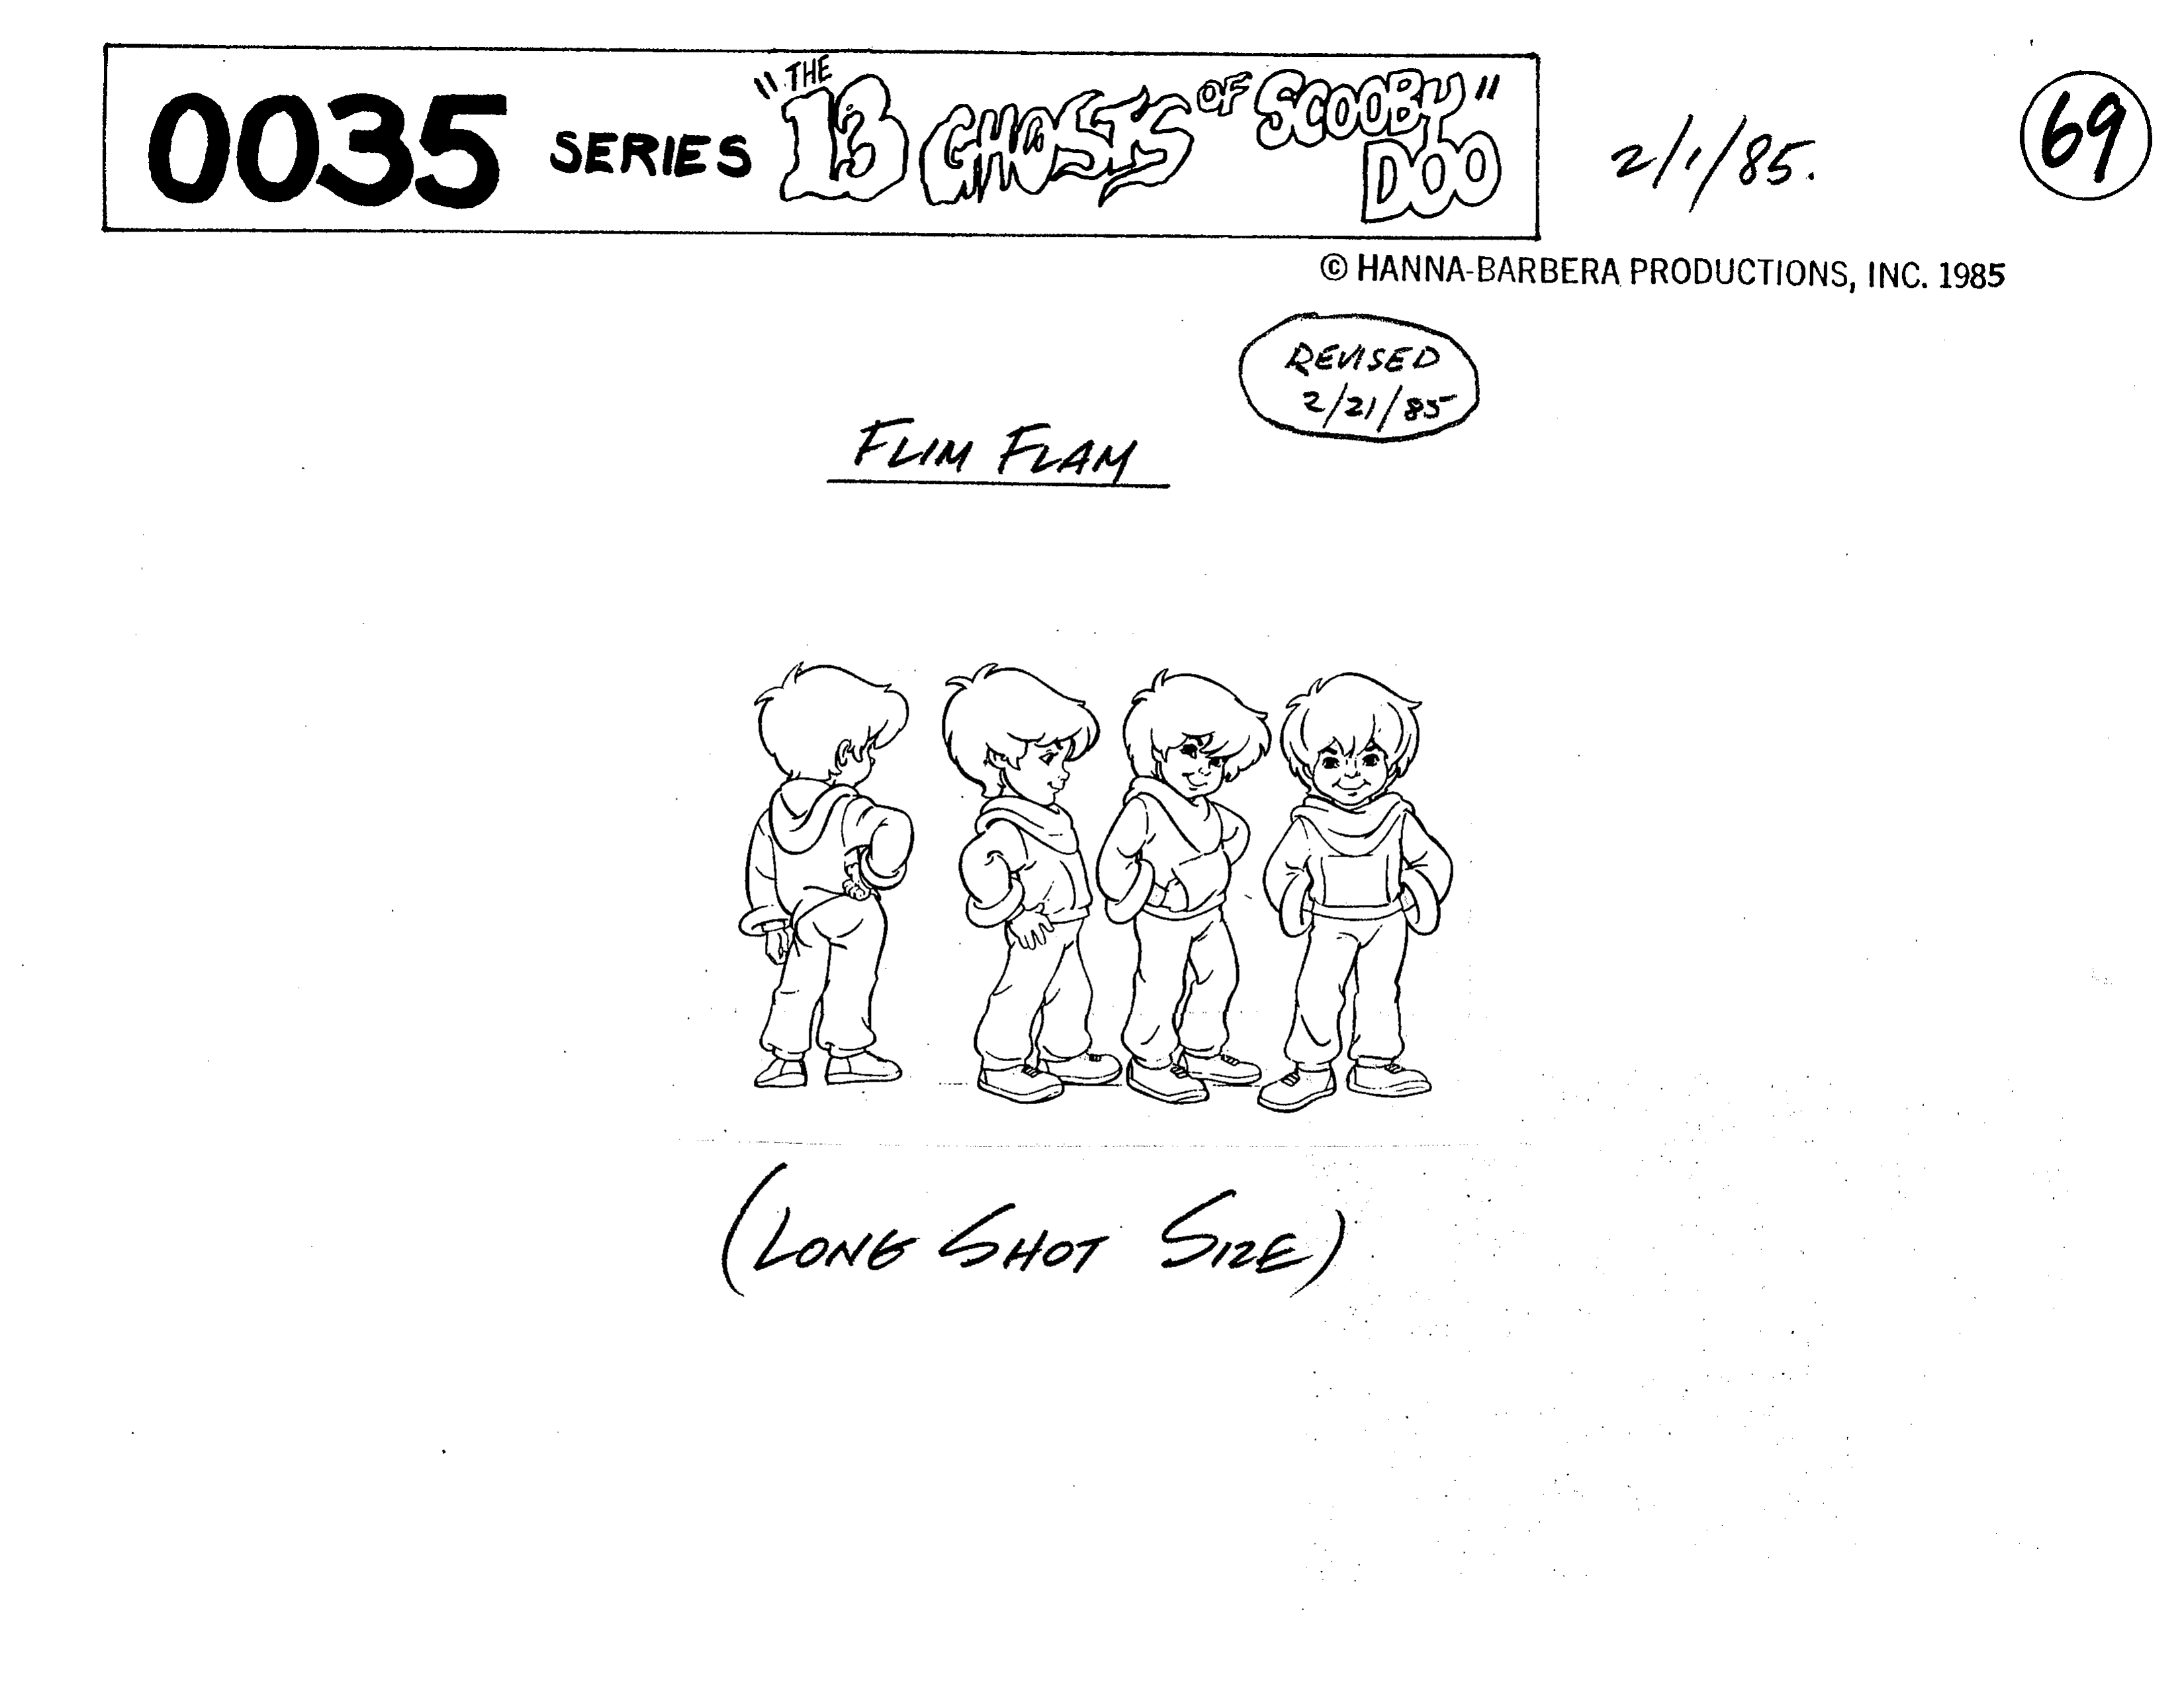 0035 SERIES "THE 13 GHOSTS OF SCOOBY DOO"
2/1/85.
69
© HANNA-BARBERA PRODUCTIONS, INC. 1985
REVISED
2/21/85
FLIM FLAM
(LONG SHOT SIZE)